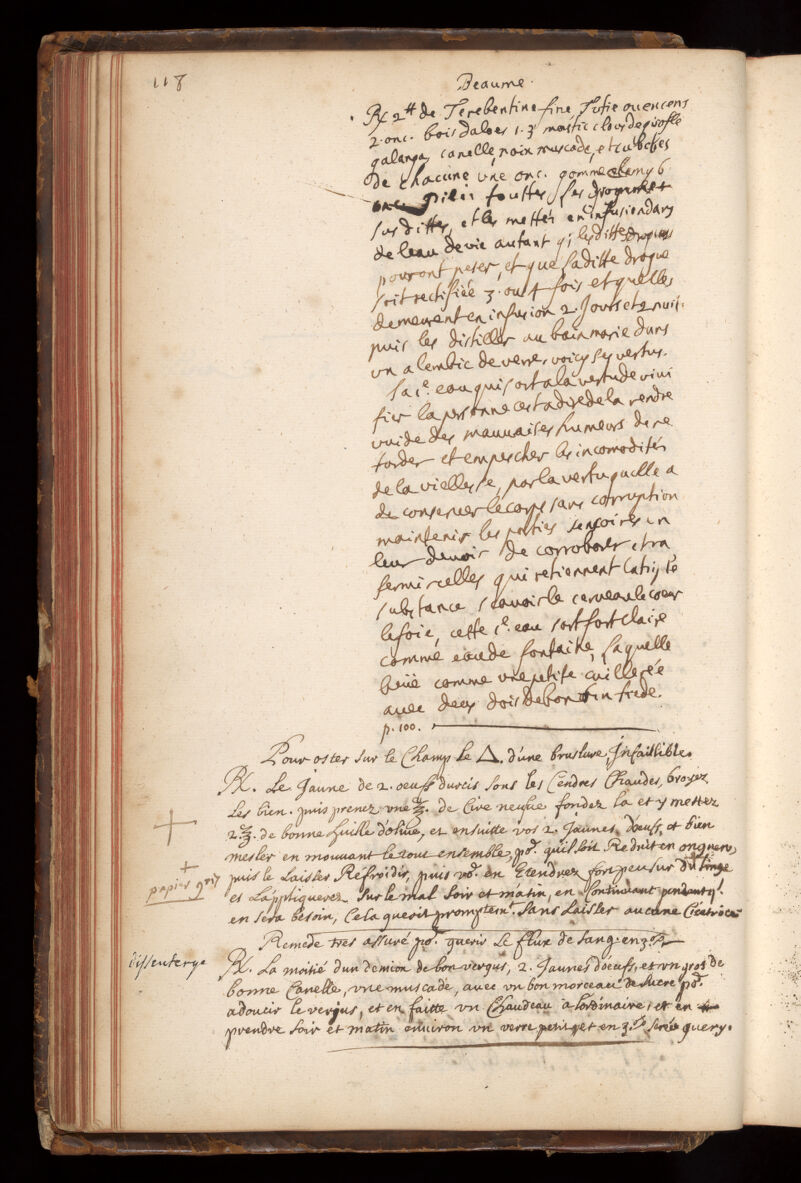 118
Beaume.
℞ 2 ₶ de Terebentine fine, Tutie ou encens
2. onc. bois daloes 1. ʒ mastic clous de girofle
galanga, canelle, noix muscade, et cubebes
de chacune une onc. gomme elemy 6
onc. Piler touttes les drogues
sus dittes, et les metter en infusion dans
de leau de vie autant q; les dittes drogues
pouront peser, et que sa ditte drogue
soit rectifiée 3. ou 4 fois et quelles
demeurent en infusion 2. Jours et 2 nuis.
puis les distiller au bain marie dans
un alembic de verre, voicy ses vertus.
La 1.e eau qui sort a la vertu de vivi
fier la personne cest a dire de la rendre
vuide des mauvaises humeurs de re
tarder et empescher les incomodités
de la viellesse, par la vertu quelle a
de conserver le corps sans corruption
maintenir les parties en
leur devoir de corroborer et ra
fermir celles qui retiennent la
substance scavoir le cerveau le coeur
le foie, cette 1.e eau sort fort claire
comme eau de fontaine, laquelle
beüe comme une petite cuillerée
avec deux dois de bon vin frede.
p. 100.
Pour oster sur le Champ le △. d'une bruslure, Infaillible.
℞. Le Jaune de 2. oeufs durcis sous les Cendres Chaudes, broyez
Les bien. puis prenez une ℥. de Cire neufue fondez la et y mettez
2. ℥. de bonne huille d'olive, et ensuitte vos 2. Jaunes d'oeufs, et bien
mesler en mouvant le tout ensemble, po.r quil soit Reduit en onguent,
puis le Laisser Refroidir, puis vo.s en Etendrez fort peu sur du linge
papier gris
et L'appliquerez sur le mal soir et matin, en Continuant pendant q.l
en sera besoin, Cela guerit promptem.t sans Laisser aucune Cicatrice
Remede tres assuré po.r guerir Le flux de sang en 3. P.
dissenterye
℞. La moitié d'un demion de bon vergus, 2. Jaunes d'oeufs, et un gros de
bonne Canelle, une muscade, avec un bon morceau de sucre po.r
adoucir le verjus, et en faitte un Chaudeau a l'ordinaire, et en
prendre soir et matin environ un verre petit, et en 3. P. serés guery.